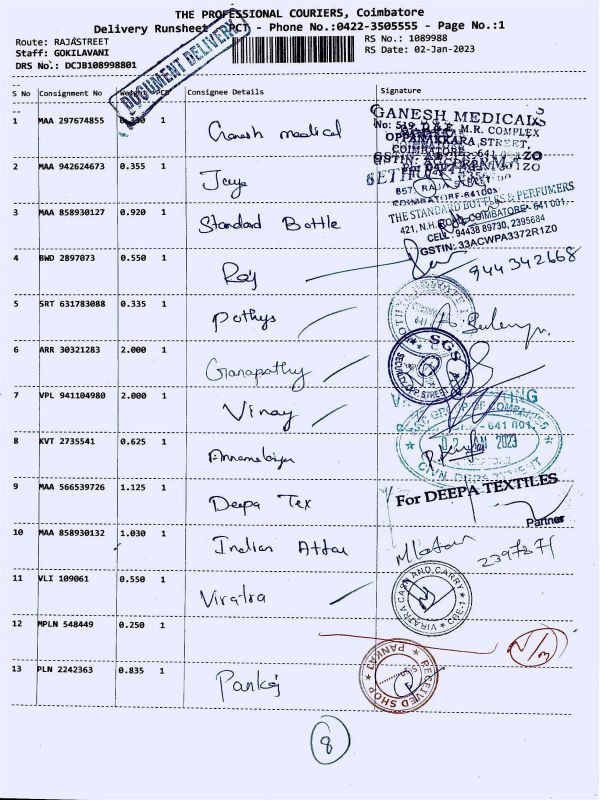 THE PROFESSIONAL COURIERS, Coimbatore
Delivery Runsheet - PCT - Phone No.:0422-3505555 - Page No.:1
Route: RAJASTREET
RS No.: 1089988
Staff: GOKILAVANI
RS Date: 02-Jan-2023
DRS No.: DCJB108998801
DOCUMENT DELIVERY
S No Consignment No Weight PCS Consignee Details Signature
1 MAA 297674855 0.330 1 Ganesh medical
GANESH MEDICALS
No: 519, M.R. COMPLEX
OPPANAKKARA STREET,
COIMBATORE - 641 001
GSTIN:
2 MAA 942624673 0.355 1 Jeya
857, RAJA STREET
COIMBATORE-641001
3 MAA 858930127 0.920 1 Standard Bottle
THE STANDARD BOTTLES & PERFUMERS
421, N.H. ROAD, COIMBATORE - 641 001.
CELL: 94438 89730, 2395684
GSTIN: 33ACWPA3372R1Z0
4 BWD 2897073 0.550 1 Raj
944342668
5 SRT 631783088 0.335 1 Pothys
6 ARR 30321283 2.000 1 Ganapathy
SGS
SECURITY
7 VPL 941104980 2.000 1 Vinay
GROUP OF COMPANIES
641 001.
02 JAN 2023
8 KVT 2735541 0.625 1
CIVIL DEPARTMENT
9 MAA 566539726 1.125 1 Deepa Tex
For DEEPA TEXTILES
Partner
10 MAA 858930132 1.030 1 Indian Attar
2397271
11 VLI 109061 0.550 1 Viratra
VIRATRA CASH AND CARRY
CBE-1
12 MPLN 548449 0.250 1
2/3
13 PLN 2242363 0.835 1 Pankaj
PANKAJ
RECEIVED SHOP
8